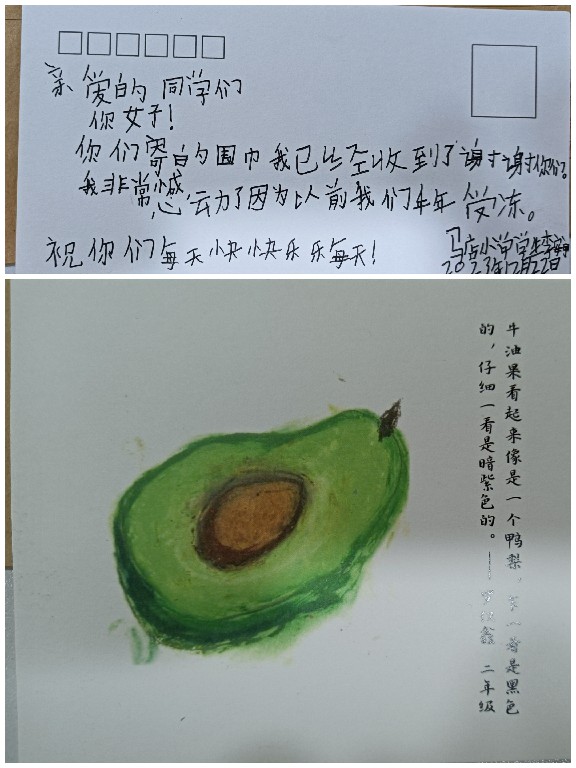 亲爱的 同学们
你好!
你们寄的围巾我已经收到了谢谢你们?
我非常感动了因为以前我们年年受冻。
祝你们每天快快乐乐每天!
马店小学学生李
2023年12月22日
牛油果看起来像是一个鸭梨,一看是黑色
的,仔细一看是暗紫色的。——鑫 二年级